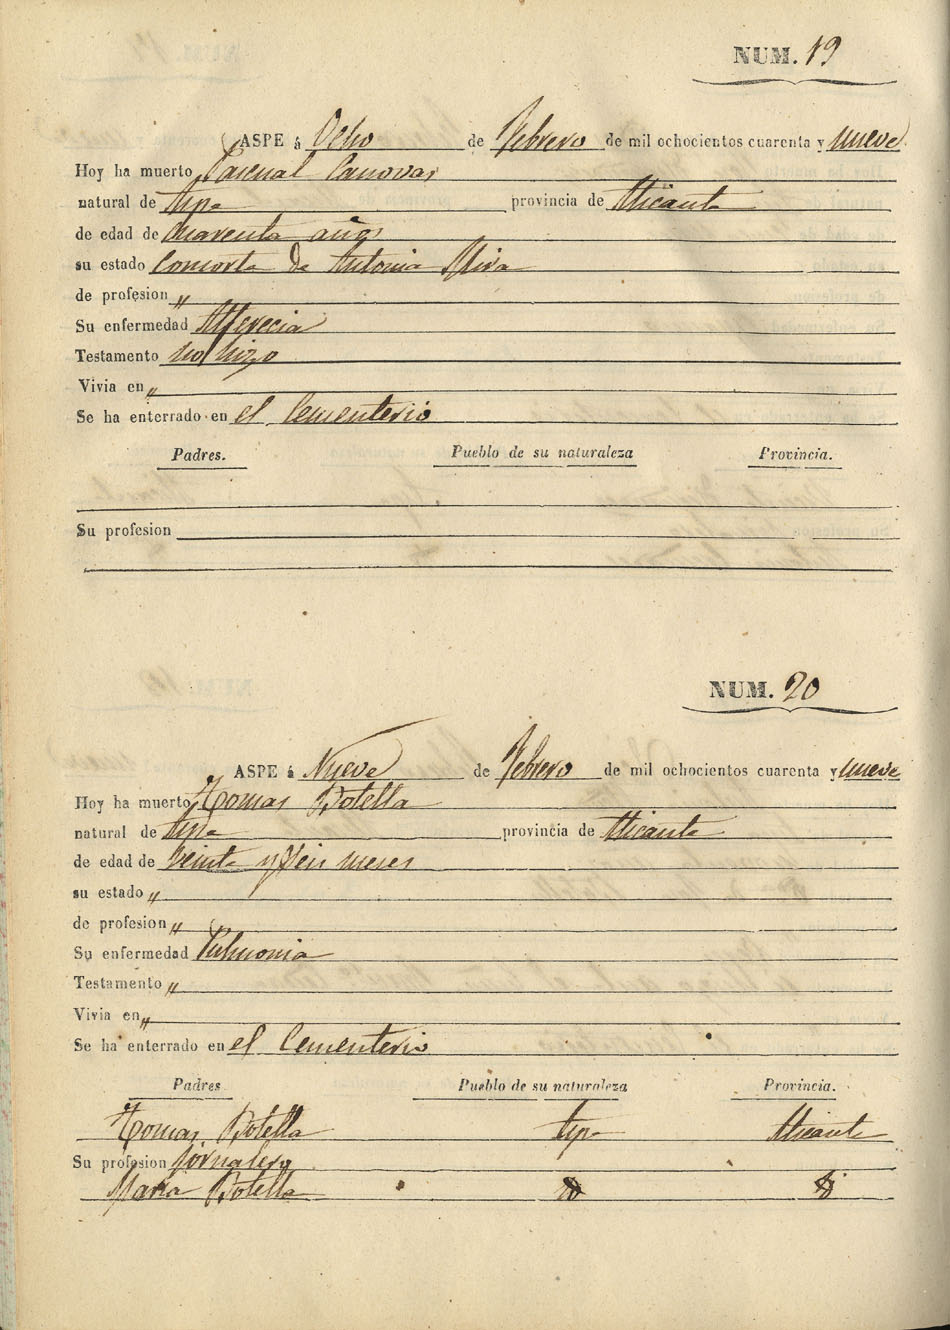 NUM. 19
ASPE á Ocho de Febrero de mil ochocientos cuarenta y nueve
Hoy ha muerto Pascual Canovas
natural de Aspe provincia de Alicante
de edad de Cuarenta años
su estado Consorte de Antonia Mira
de profesion „
Su enfermedad Alferecia
Testamento no hizo
Vivia en „
Se ha enterrado en el Cementerio
Padres. Pueblo de su naturaleza Provincia.
Su profesion
NUM. 20
ASPE á Nueve de Febrero de mil ochocientos cuarenta y nueve
Hoy ha muerto Tomas Botella
natural de Aspe provincia de Alicante
de edad de Veinte y seis meses
su estado „
de profesion „
Su enfermedad Pulmonia
Testamento „
Vivia en „
Se ha enterrado en el Cementerio
Padres Pueblo de su naturaleza Provincia.
Tomas Botella Aspe Alicante
Su profesion Jornalero
Maria Botella